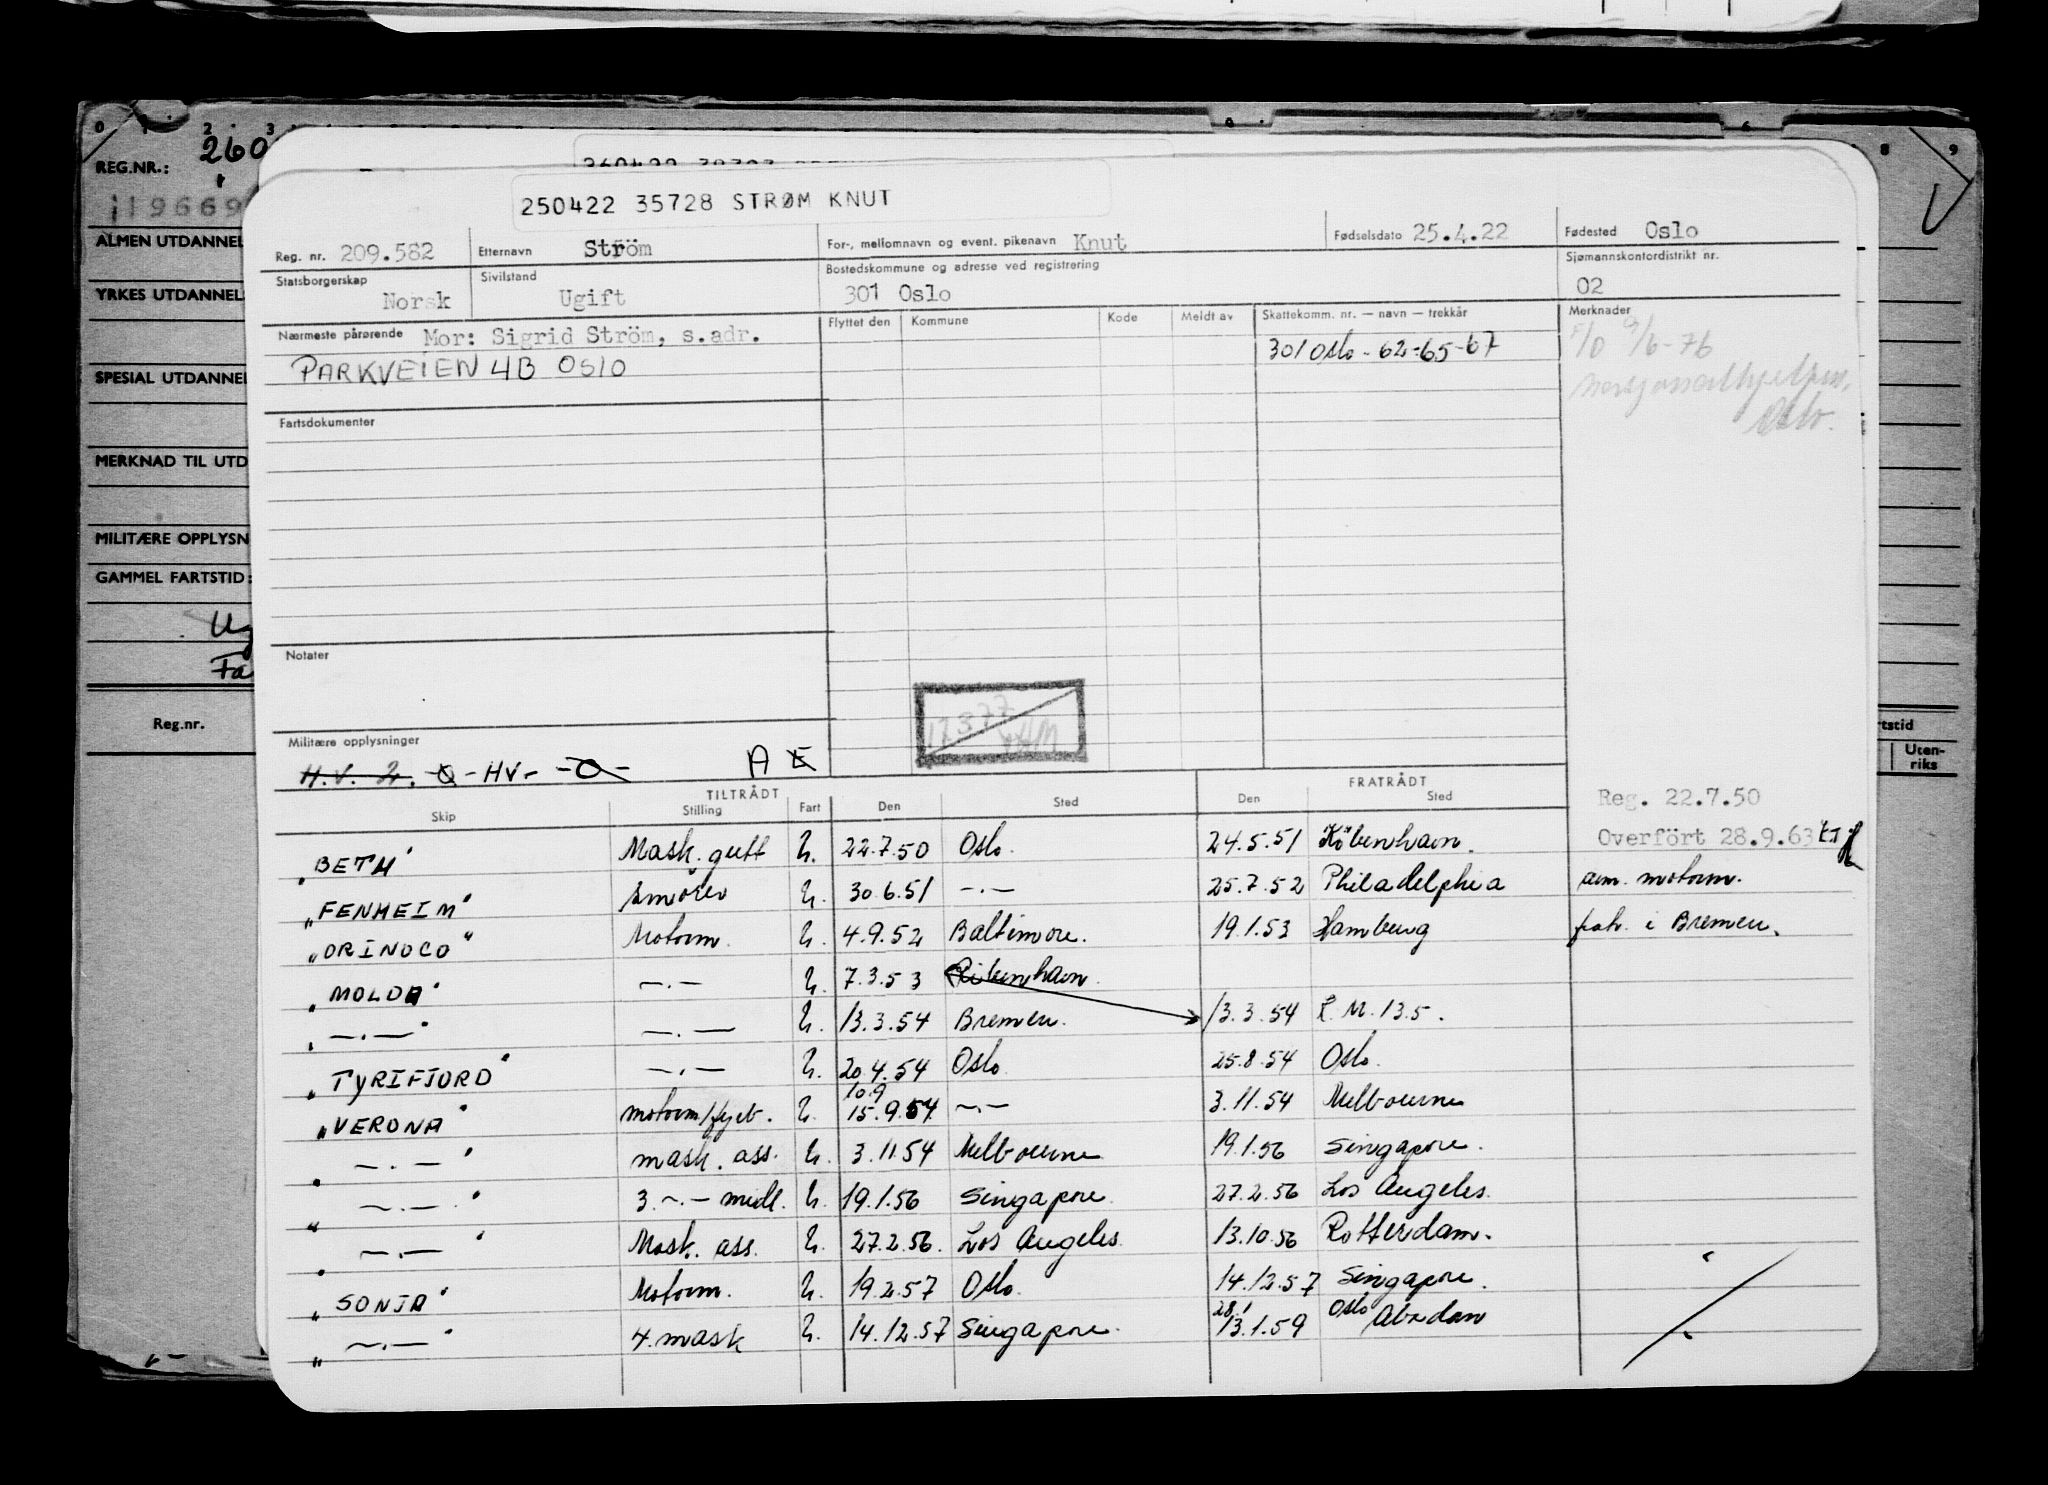 0 1 2 3 8 9
260
REG.NR.:
19669
ALMEN UTDANNEL
YRKES UTDANNEL
SPESIAL UTDANNEL
MERKNAD TIL UTD
MILITÆRE OPPLYSN
GAMMEL FARTSTID:
Ug
Fa
Reg.nr.
rtstid
Uten-
riks
250422 35728 STRØM KNUT
Reg. nr. 209.582 Etternavn Ström For-, mellomnavn og event. pikenavn Knut Fødselsdato 25.4.22 Fødested Oslo
Statsborgerskap Norsk Sivilstand Ugift Bostedskommune og adresse ved registrering 301 Oslo Sjømannskontordistrikt nr. 02
Nærmeste pårørende Mor: Sigrid Ström, s.adr. Flyttet den Kommune Kode Meldt av Skattekomm. nr. — navn — trekkår Merknader
PARKVEIEN 4B OSLO 301 Oslo - 62-65-67
9/6-76
Oslo.
Fartsdokumenter
Notater
12377
Militære opplysninger
H.V. 2. -O- HV- -O- A E
TILTRÅDT FRATRÅDT
Skip Stilling Fart Den Sted Den Sted
Reg. 22.7.50
Overfört 28.9.63
"BETH" Mask. gutt U. 22.7.50 Oslo. 24.5.51 Köbenhavn.
"FENHEIM" Smörer U. 30.6.51 —.— 25.7.52 Philadelphia am. motorm.
"ORINOCO" Motorm. U. 4.9.52 Baltimore. 19.1.53 Hamburg fratr. i Bremen.
"MOLDA" —.— U. 7.3.53 Köbenhavn.
" —.— " —.— U. 13.3.54 Bremen. 13.3.54 L.M. 13.5.
"TYRIFJORD" —.— U. 20.4.54 Oslo 25.8.54 Oslo.
"VERONA" motorm/fyrb. U. 10.9 15.9.54 —.— 3.11.54 Melbourne
" —.— " mask. ass. U. 3.11.54 Melbourne 19.1.56 Singapore.
" —.— " 3. —.— midl. U. 19.1.56 Singapore 27.2.56 Los Angeles.
" —.— " Mask. ass. U. 27.2.56. Los Angeles 13.10.56 Rotterdam.
"SONJA" Motorm. U. 19.2.57 Oslo. 14.12.57 Singapore.
" —.— " 4. mask U. 14.12.57 Singapore. 28.1 13.1.59 Oslo Abadan